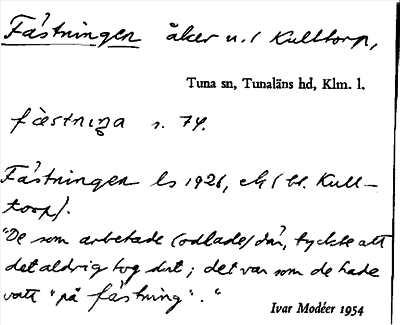 Fästningen åker u. / Kulltorp,
Tuna sn, Tunaläns hd, Klm. l.
fästniŋa s. 74.
Fästningen ls 1926, ek (bl. Kull-
torp).
"De som arbetade (odlade) där, tyckte att
det aldrig tog slut; det var som de hade
vatt "på fästning"."
Ivar Modéer 1954